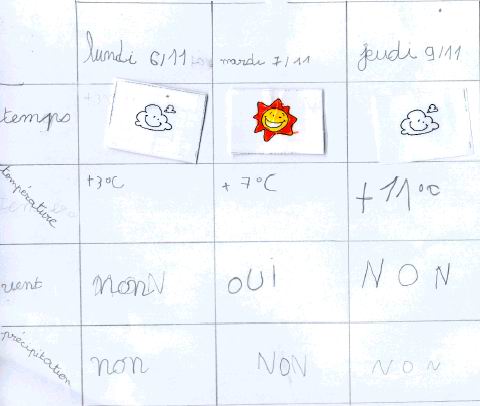 lundi 6/11 mardi 7/11 jeudi 9/11
temps
température +3°C +7°C +11°C
vent non OUI NON
précipitation non NON NON